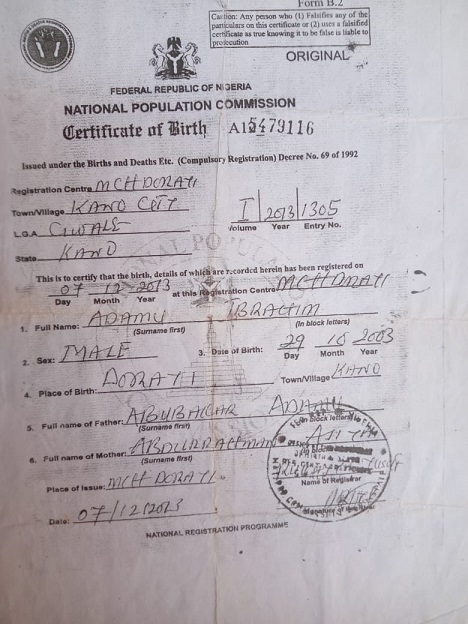 Form B.2
Caution: Any person who (1) Falsifies any of the
particulars on this certificate or (2) uses a falsified
certificate as true knowing it to be false is liable to
prosecution
ORIGINAL
FEDERAL REPUBLIC OF NIGERIA
NATIONAL POPULATION COMMISSION
Certificate of Birth A15479116
Issued under the Births and Deaths Etc. (Compulsory Registration) Decree No. 69 of 1992
Registration Centre MCH DORAYI
Town/Village KANO CITY
L.G.A. GWALE
State KANO
I 2013 1305
Volume Year Entry No.
This is to certify that the birth, details of which are recorded herein has been registered on
07 12 2013 at this Registration Centre MCH DORAYI
Day Month Year
1. Full Name: ADAMU IBRAHIM
(Surname first) (In block letters)
2. Sex: MALE 3. Date of Birth: 29 10 2003
Day Month Year
4. Place of Birth: DORAYI Town/Village KANO
5. Full name of Father: ABUBAKAR ADAMU
(Surname first) (In block letters)
6. Full name of Mother: ABDURRAHMAN
(Surname first)
Place of Issue: MCH DORAYI
Name of Registrar
Date: 07/12/2013
NATIONAL REGISTRATION PROGRAMME